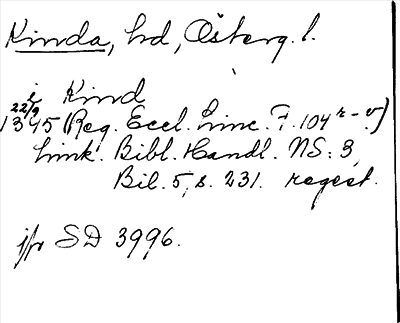 Kinda, hd, Österg. l.
i Kind
22/9
1345 (Reg. Eccl. Linc. F. 104 r-v)
Link. Bibl. Handl. NS: 3,
Bil. 5, s. 231. regest.
jfr SD 3996.